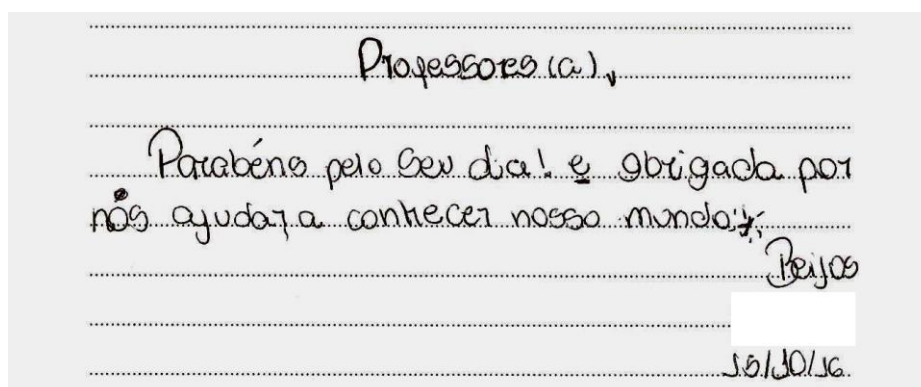 Professores (a),
Parabéns pelo seu dia! e obrigada por
nós ajudar a conhecer nosso mundo!
Beijos
15/10/16